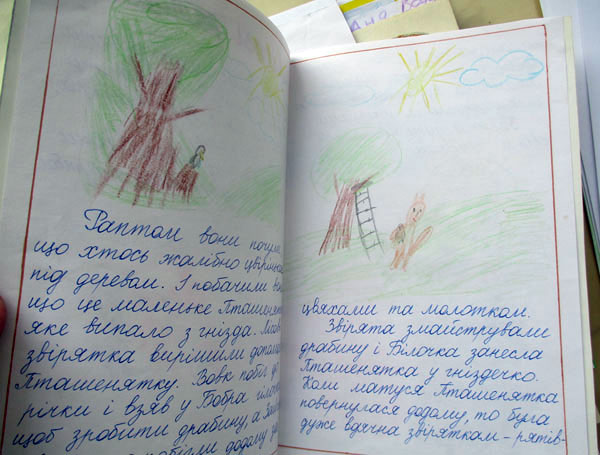 Раптом вони почули
що хтось жалібно
під деревом. І побачили
що це маленьке Пташеня
яке випало з гнізда.
звірятка вирішили
Пташенятку. Вовк побіг до
річки і взяв у Бобра
щоб зробити драбину, а
побігли додому
цвяхами та молотком.
Звірята змайстрували
драбину і Білочка занесла
Пташенятка у гніздечко.
Коли матуся Пташенятка
повернулася додому, то була
дуже вдячна звіряткам - рятів-